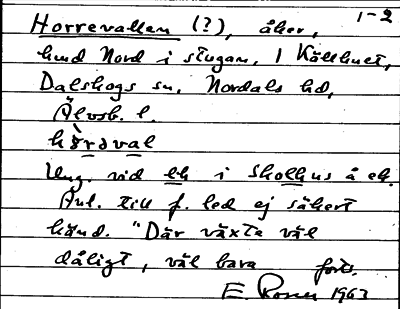 1-2
Horrevallen (?), åker,
hmd Nord i stugan, 1 Källhult,
Dalskogs sn, Nordals hd,
Älvsb. l.
hòrəval
Ung. vid lh i Skollhus å ek.
Anl. till f. led ej säkert
känd. "Där växte väl
dåligt, väl bara forts.
E. Rosén 1963